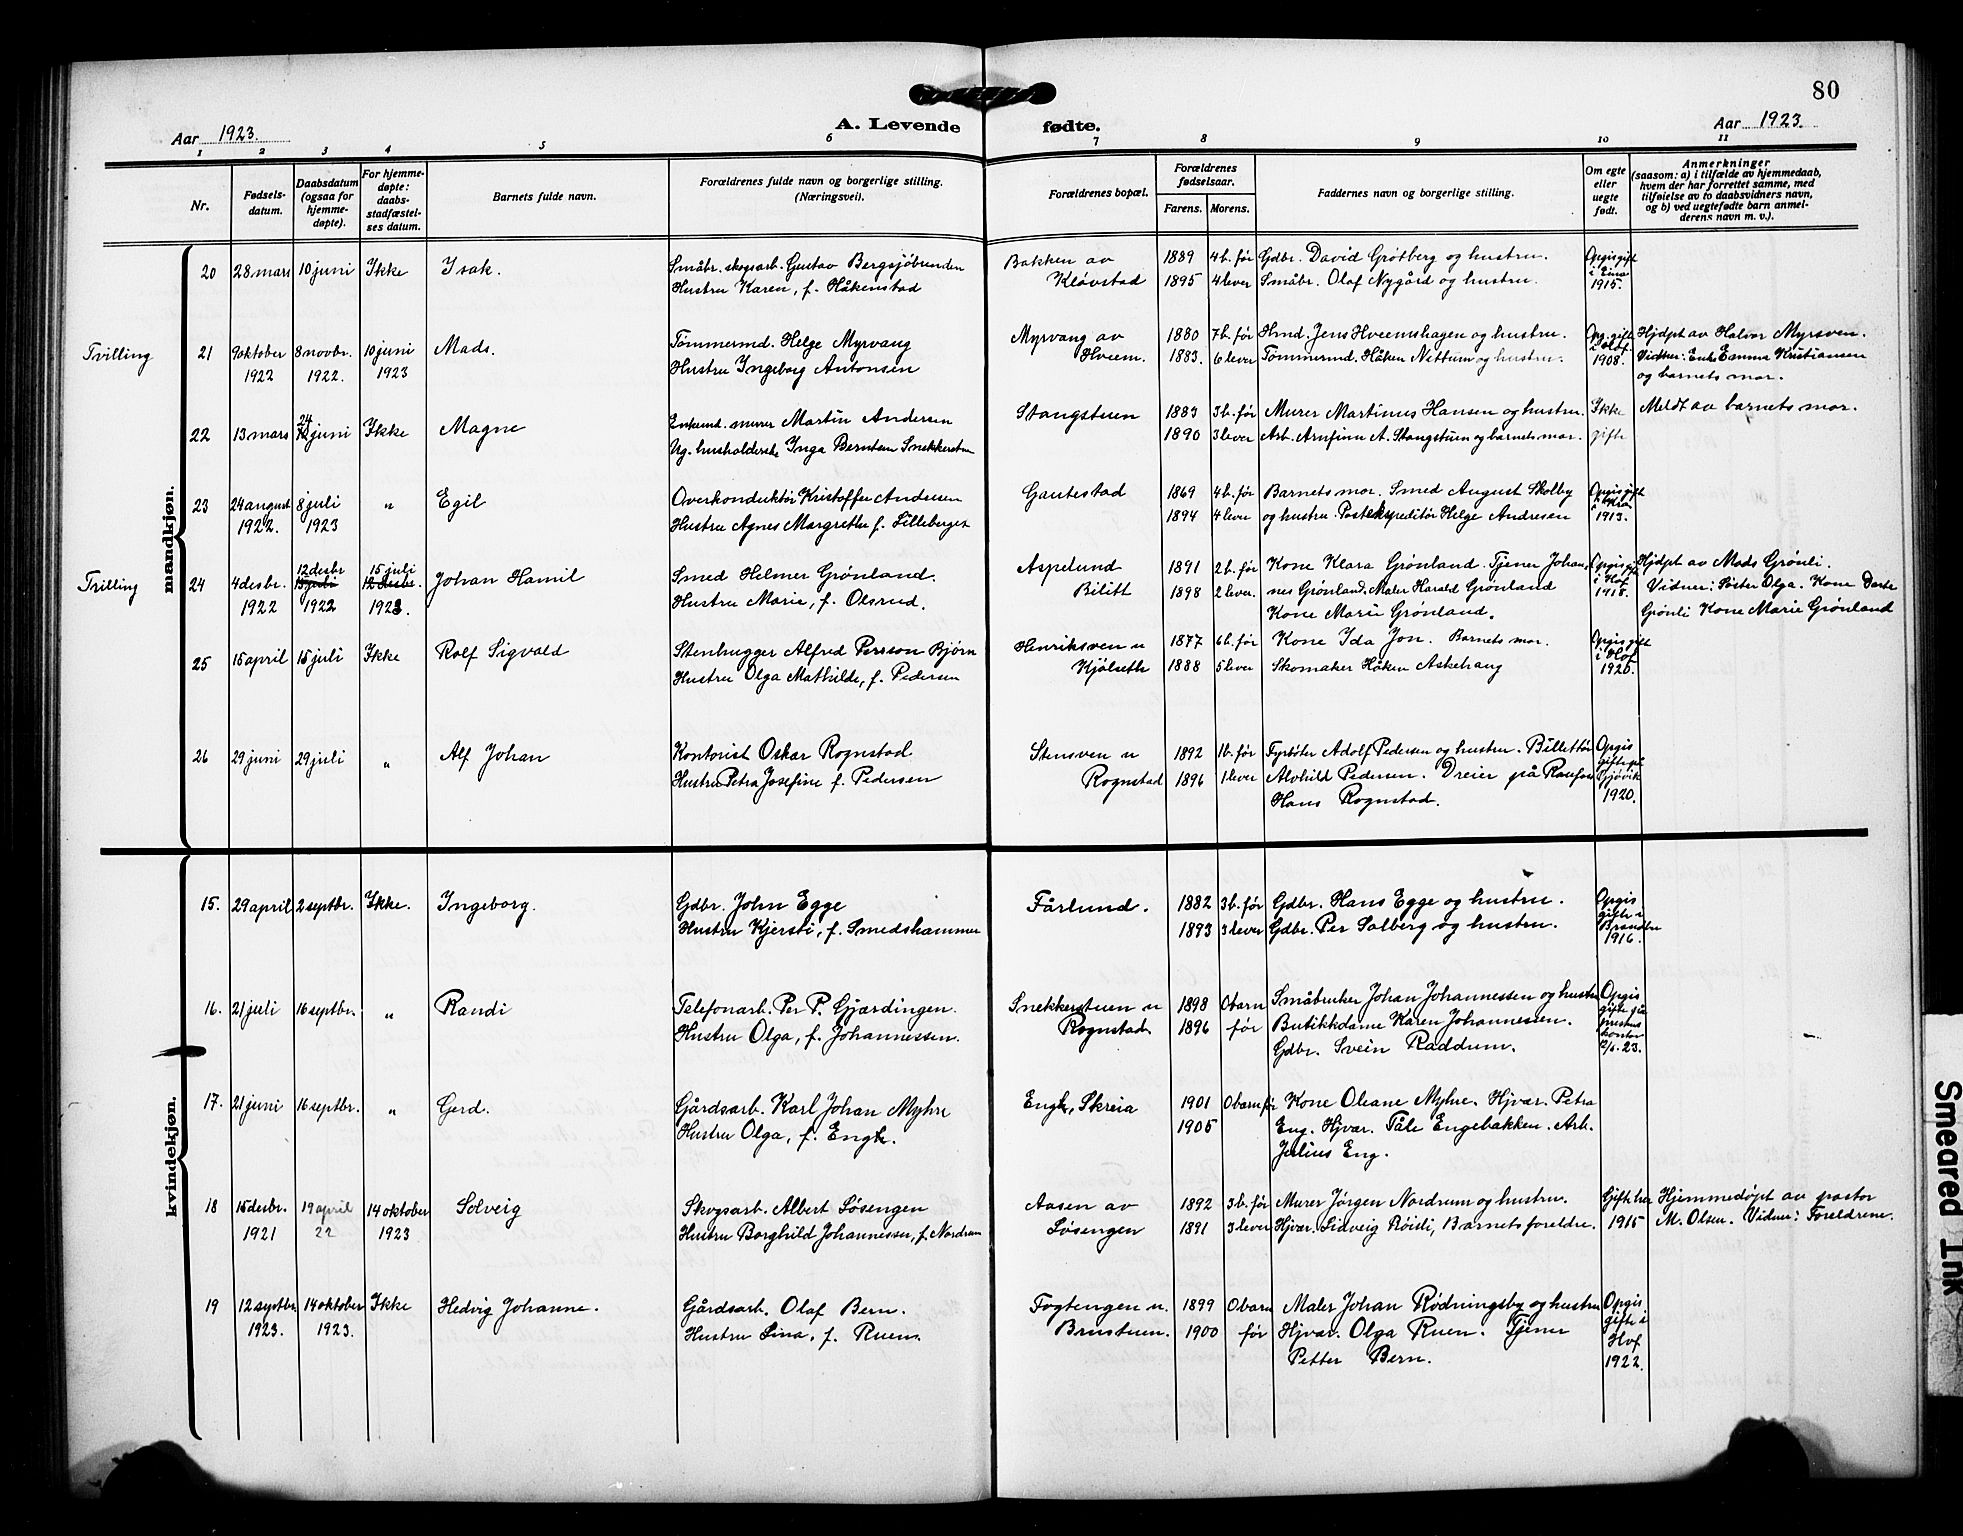 80
Aar 1923.
A. Levende fødte.
Aar 1923.
1 2 3 4 5 6 7 8 9 10 11
Nr.
Fødsels-
datum.
Daabsdatum
(ogsaa for
hjemme-
døpte).
For hjemme-
døpte:
daabs-
stadfæstel-
ses datum.
Barnets fulde navn.
Forældrenes fulde navn og borgerlige stilling.
(Næringsvei).
Forældrenes bopæl.
Forældrenes
fødselsaar.
Farens. Morens.
Faddernes navn og borgerlige stilling.
Om egte
eller
uegte
født.
Anmerkninger
(saasom: a) i tilfælde av hjemmedaab,
hvem der har forrettet samme, med
tilføielse av to daabsvidners navn,
og b) ved uegtefødte barn anmel-
derens navn m. v.).
mandkjøn.
20 28 mars 10 juni Ikke Isak. Småbr. skogsarb. Gustav Bergsjøbunden Bakken av 1889 4 b. før Gdbr. David Grøtberg og hustru. Opgis gift
Hustru Karen, f. Håkenstad Kløvstad 1895 4 lever Småbr. Olaf Nygård og hustru. i Eina
1915.
Tvilling 21 9 oktober 8 novbr. 10 juni Mads. Tømmermd. Helge Myrvang Myrvang av 1880 7 b. før Hmd. Jens Hveemshagen og hustru. Opg. gift Hjdpt av Halvor Myrsven.
1922 1922. 1923 Hustru Ingeborg Antonsen Hveem. 1883. 6 lever Tømmermd. Håken Nettum og hustru. i Hof 1908. Vidner: Enke Emma Kristiansen
og barnets mor.
22 13 mars 24 juni Ikke Magne Enkemd. murer Martin Andersen Stangstuen 1883 3 b. før Murer Martinus Hansen og hustru. Ikke Meldt av barnets mor.
Ug. husholderske Inga Berntsen Snekkerstuen 1890 3 lever Arb. Arnfinn A. Stangstuen og barnets mor. gifte
23 24 august 8 juli " Egil Overkonduktør Kristoffer Andresen Gautestad 1869 4 b. før Barnets mor. Smed August Skolby Opgis gift
1922. 1923 Hustru Agnes Margrethe f. Lilleberget 1894 4 lever og hustru. Postekspeditør Helge Andresen
1913.
Tvilling 24 4 desbr. 12 desbr 15 juli Johan Hamil Smed Helmer Grønland. Aspelund 1891 2 b. før Kone Klara Grønland. Tjener Johan- Opgis gift Hjdpt av Mads Grønli.
15 juli 12 desbr.
1922 1922 1923. Hustru Marie, f. Olsrud. Bilitt 1898 2 lever. nes Grønland. Maler Harald Grønland i Hof 1918. Vidner: Søster Olga. Kone Dorte
Kone Marie Grønland. Grønli Kone Marie Grønland
25 15 april 15 juli Ikke Rolf Sigvald Stenhugger Alfred Persson Bjørn Henriksven u 1877 6 b. før Kone Ida Jon. Barnets mor. Opgis gift
Hustru Olga Mathilde, f. Pedersen Kjølseth 1888 5 lever Skomaker Håken Askehaug i Hof
1920.
26 29 juni 29 juli " Alf Johan Kontorist Oskar Rognstad Stensven u 1892 1 b. før Fyrbøter Adolf Pedersen og hustru. Billettør Opgis
Hustru Petra Josefine f. Pedersen Rognstad 1896 1 lever Alvhild Pedersen. Dreier på Raufoss gifte på Gjøvik
Hans Rognstad. 1920.
kvindekjøn.
15. 29 april 2 septbr. Ikke. Ingeborg. Gdbr. John Egge Fårlund. 1882 3 b. før Gdbr. Hans Egge og hustru. Opgis
Hustru Kjersti, f. Smedshammer 1893 3 lever Gdbr. Per Solberg og hustru. gifte i Brandbu
1916.
16. 21 juli 16 septbr. " Randi Telefonarb. Per P. Gjærdingen. Snekkerstuen u 1898 0 barn Småbruker Johan Johannessen og hustru Opgis
Hustru Olga, f. Johannessen. Rognstad 1896 før Butikkdame Karen Johannessen. gifte på
Gdbr. Svein Raddum. kontor 23.
17. 21 juni 16 septbr. " Gerd. Gårdsarb. Karl Johan Myhre Engh, Skreia 1901 0 barn før Kone Oleane Myhre. Hjvær. Petra
Hustru Olga, f. Engh. 1905 Eng. Hjvær. Tåle Engebakken. Arb.
Julius Eng.
18 15 desbr. 19 april 14 oktober Solveig Skogsarb. Albert Løsengen Aasen av 1892 3 b. før Murer Jørgen Nordrum og hustru. Gifte her Hjemmedøpt av pastor
1921 22 1923 Hustru Borghild Johannessen, f. Nordrum Løsengen 1891 3 lever Hjvær. Sidveig Røisli, Barnets foreldre. 1915 M. Olsen. Vidner: Foreldrene.
19 12 septbr. 14 oktober Ikke Hedvig Johanne. Gårdsarb. Olaf Bern. Fogtengen u. 1899 0 barn Maler Johan Rødningsby og hustru Opgis
1923. 1923. Hustru Lina, f. Ruen. Brustuen. 1900 før Hjvær. Olga Ruen. Tjener gifte i
Petter Bern. Hof
1922.
Smeared Ink